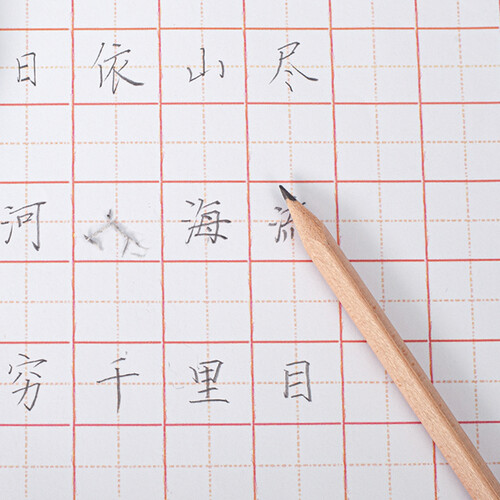 日依山尽
河海流
穷千里目